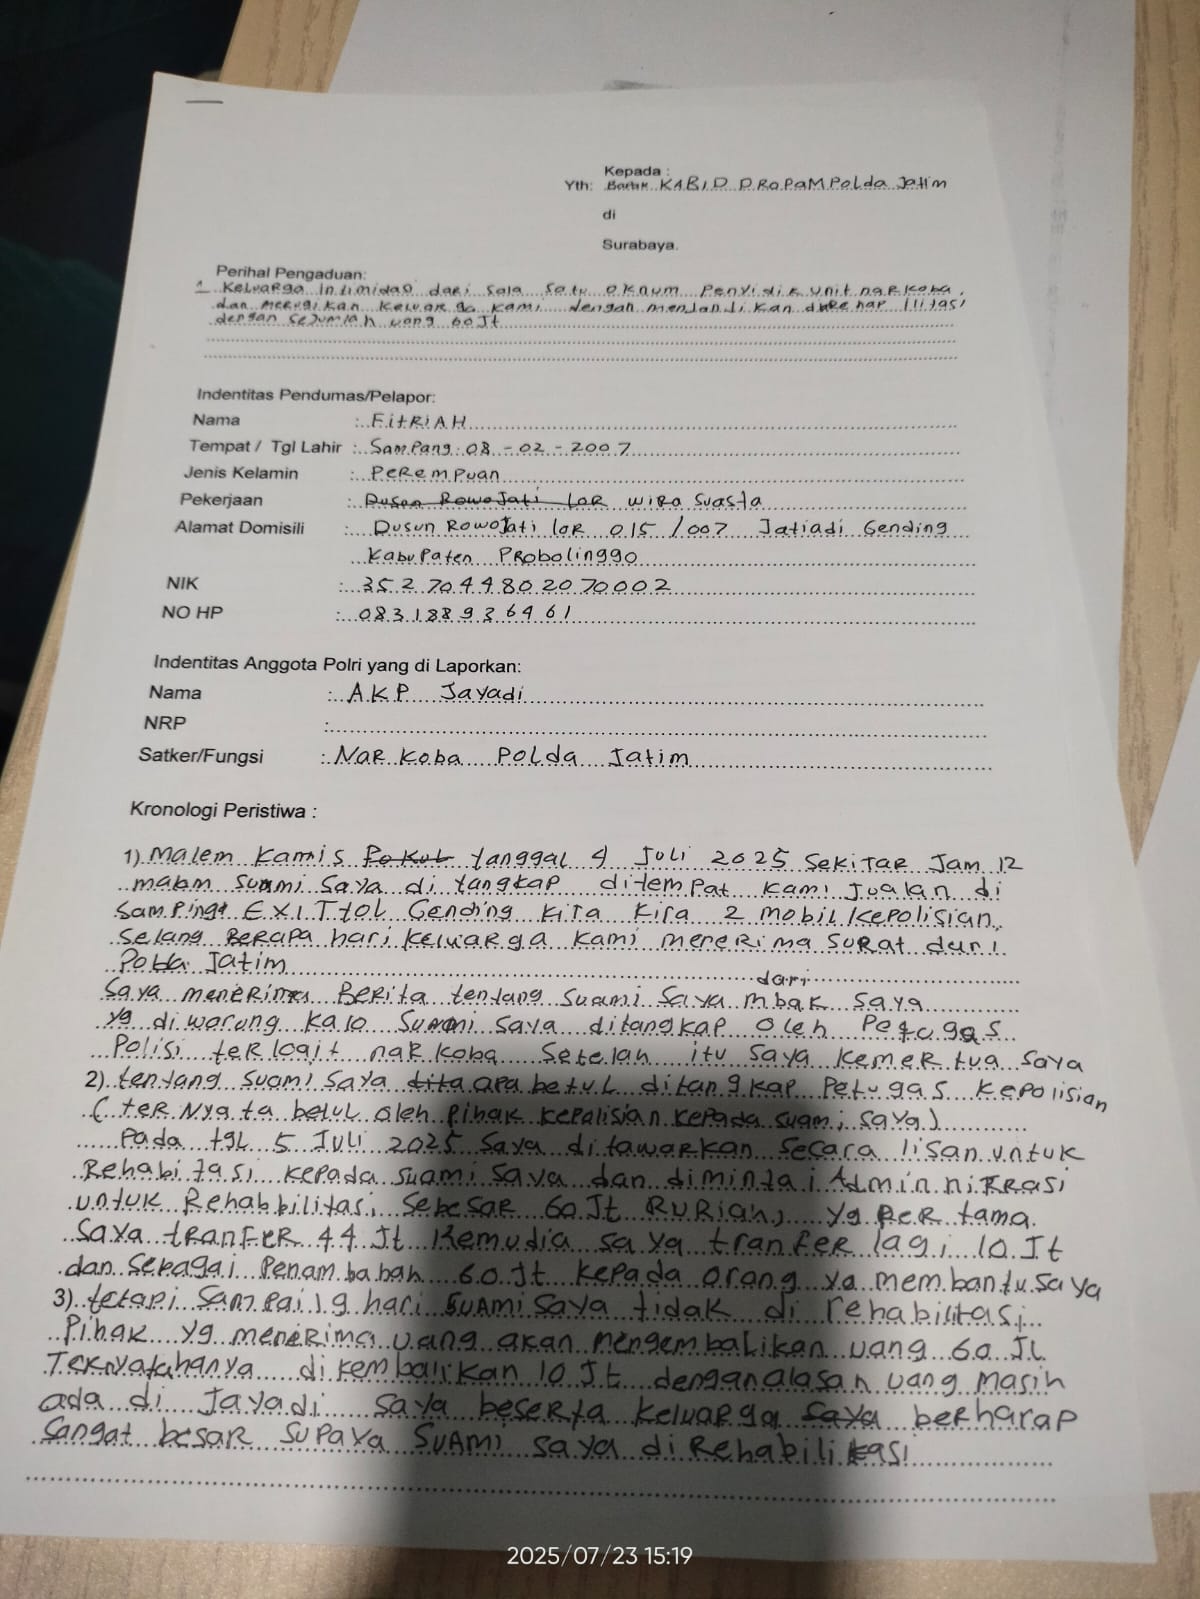 Kepada :
Yth: Bapak KABID PROPAM Polda Jatim
di
Surabaya.
Perihal Pengaduan:
1 Keluarga intimidasi dari sala satu oknum penyidik unit narkoba,
dan merugikan keluarga kami dengan menjandikan di rehap ilitasi
dengan sejumlah uang 60 Jt
Indentitas Pendumas/Pelapor:
Nama : FitRiAH
Tempat / Tgl Lahir : Sampang 08 - 02 - 2007
Jenis Kelamin : PeRemPuan
Pekerjaan : Dusun RowoJati loR wiRa Suasta
Alamat Domisili : Dusun RowoJati loR 015 /007 Jatiadi Gending
KabuPaten PRobolinggo
NIK : 3527044802070002
NO HP : 083188936461
Indentitas Anggota Polri yang di Laporkan:
Nama : AKP Jayadi
NRP :
Satker/Fungsi : NaRkoba Polda Jatim
Kronologi Peristiwa :
1) Malem Kamis tanggal 4 Juli 2025 SekitaR Jam 12
malam suami saya di tangkap ditempat kami jualan di
samping EXIT tol Gending kira kira 2 mobil kepolisian,
selang berapa hari keluarga kami menerima surat dari
Polda Jatim
dari
Saya menerima Berita tentang suami saya mbak saya
yg di warung kalo suami saya ditangkap oleh Petugas
Polisi terkait narkoba Setelah itu saya kemertua saya
2) tentang suami saya apa betul ditangkap Petugas kepolisian
(teRNyata betul oleh pihak kepolisian kepada suami saya)
Pada tgl 5 Juli 2025 saya ditawarkan secara lisan untuk
Rehabitasi kepada suami saya dan diminta Adminnikrasi
untuk Rehabbilitasi sebesar 60 Jt RuRiah, yg pertama
saya tranfer 44 Jt kemudia saya tranfer lagi 10 Jt
dan sebagai penambahah 60 Jt kepada orang yg membantu saya
3) tetapi sampai 19 hari suami saya tidak di rehabilitasi
Pihak yg menerima uang akan mengembalikan uang 60 Jt
Teknyatahanya di kembalikan 10 Jt dengan alasan uang masih
ada di Jayadi saya beserta keluarga saya berharap
sangat besar supaya suami saya di Rehabilikasi
2025/07/23 15:19